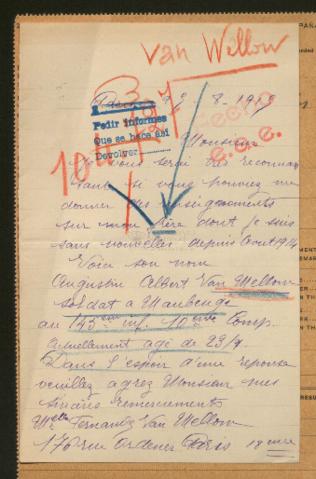 Van Wellow
Paris 29. 8. 1919
Pedir informes
Que se hace asi
Devolver
Monsieur
Je vous serai très reconnais
sante si vous pouvez me
donner des renseignements
sur mon frère dont je suis
sans nouvelles depuis Aout 1914
Voici son nom
Augustin Albert Van Mellow
soldat a Maubeuge
au 145 eme inf. 10 eme Comp
actuellement agé de 23/4
Dans l'espoir d'une reponse
veuillez agréz Monsieur mes
sincères remerciements
Melle Fernande Van Mellow
176 rue Ordener Paris 18 eme